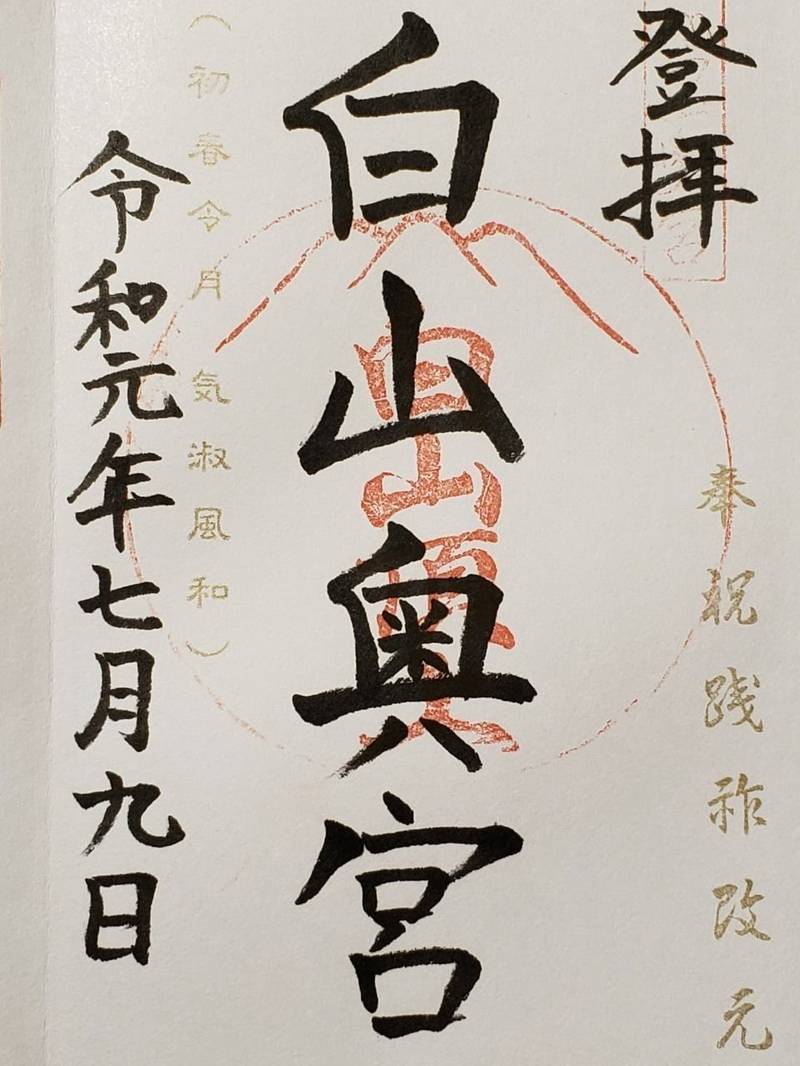 登拝
奉祝践祚改元
白山奥宮
白山頂上
（初春令月 気淑風和）
令和元年七月九日